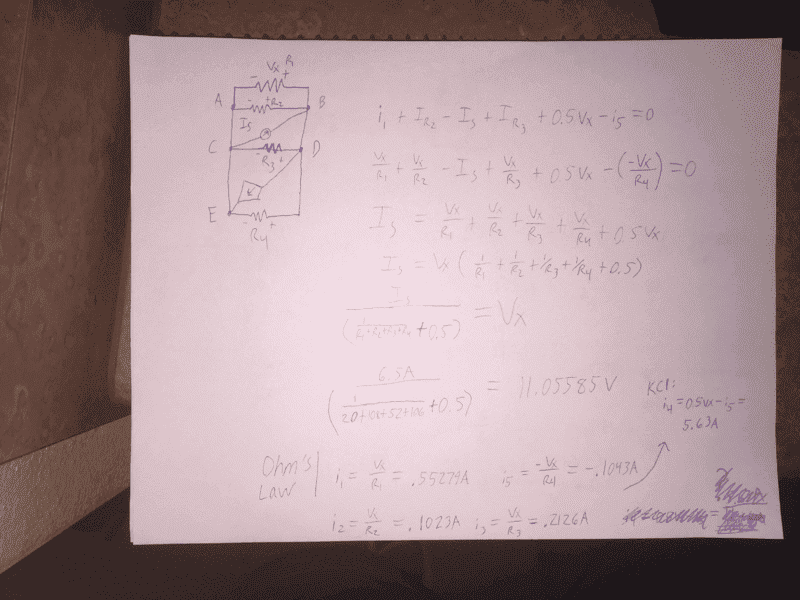 - Vx + R1
A - + R2 B
Is
C - R3 + D
E - R4 +
i1 + IR2 - Is + IR3 + 0.5Vx - i5 = 0
Vx/R1 + Vx/R2 - Is + Vx/R3 + 0.5Vx - (-Vx/R4) = 0
Is = Vx/R1 + Vx/R2 + Vx/R3 + Vx/R4 + 0.5Vx
Is = Vx (1/R1 + 1/R2 + 1/R3 + 1/R4 + 0.5)
Is / (1/R1+R2+R3+R4 + 0.5) = Vx
6.5A / (1/20+108+52+106 + 0.5) = 11.05585 V
KCl:
i4 = 0.5Vx - i5 =
5.63A
Ohm's
Law
i1 = Vx/R1 = .55279A i5 = -Vx/R4 = -.1043A
i2 = Vx/R2 = .1023A i3 = Vx/R3 = .2126A